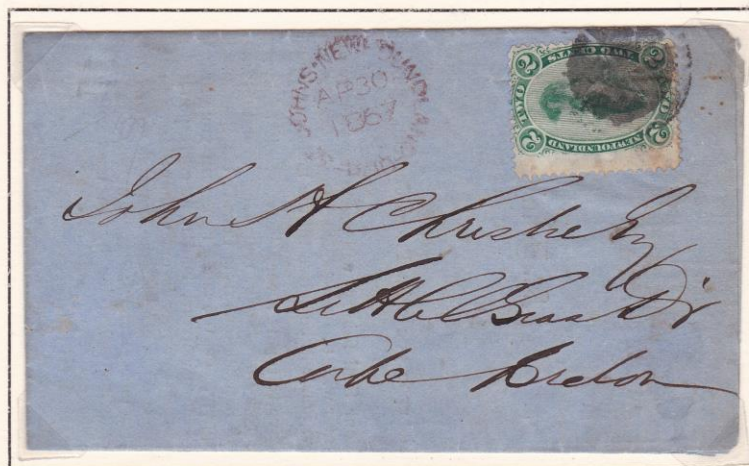 ST JOHNS-NEWFOUNDLAND
AP30
1867
PAID
TWO CENTS
2
2
TWO
2
2
NEWFOUNDLAND
John H Christie Esq
Little Bras D'or
Cape Breton